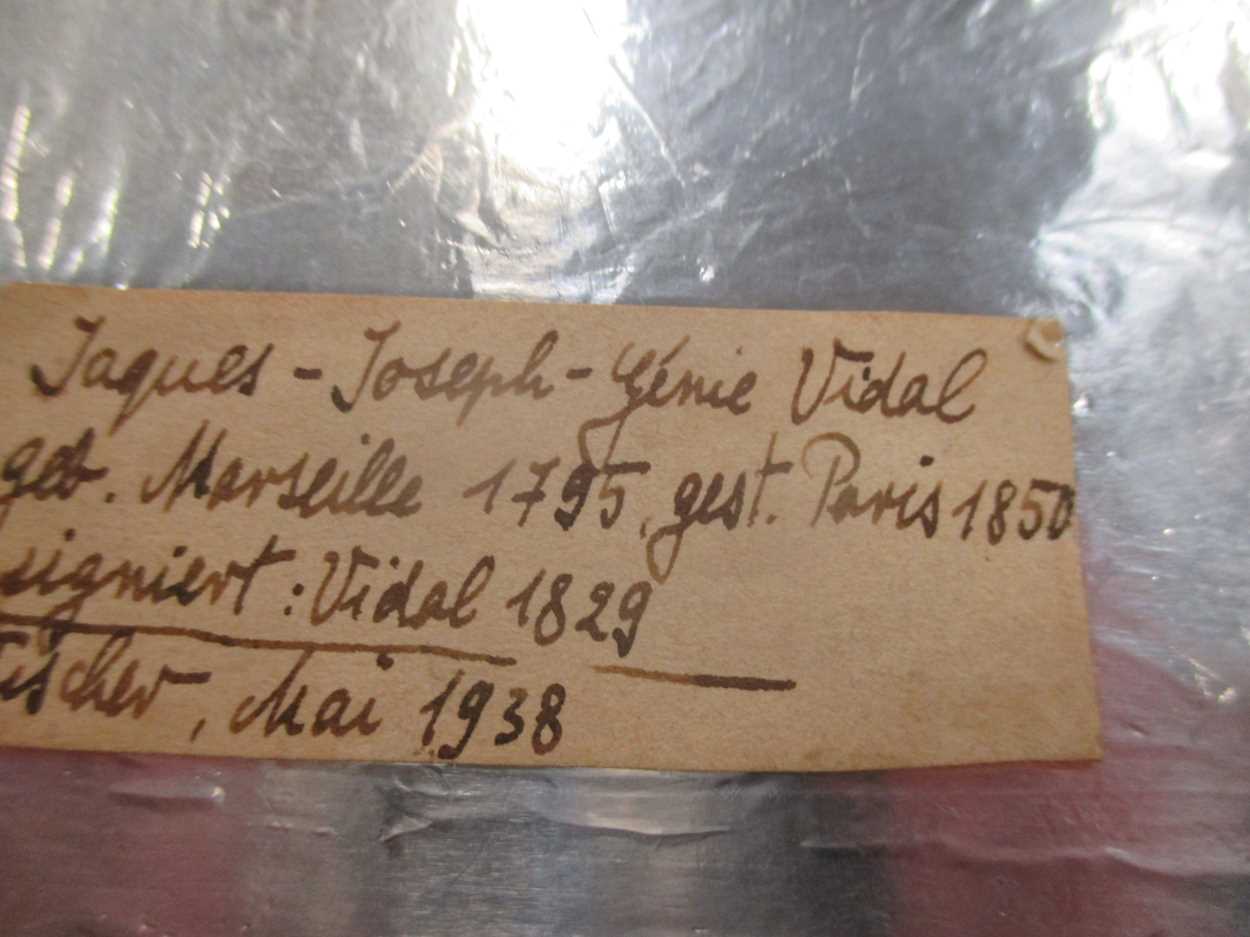 Jaques - Joseph - Génie Vidal
geb. Marseille 1795, gest. Paris 1850
signiert : Vidal 1829
Fischer, Mai 1938